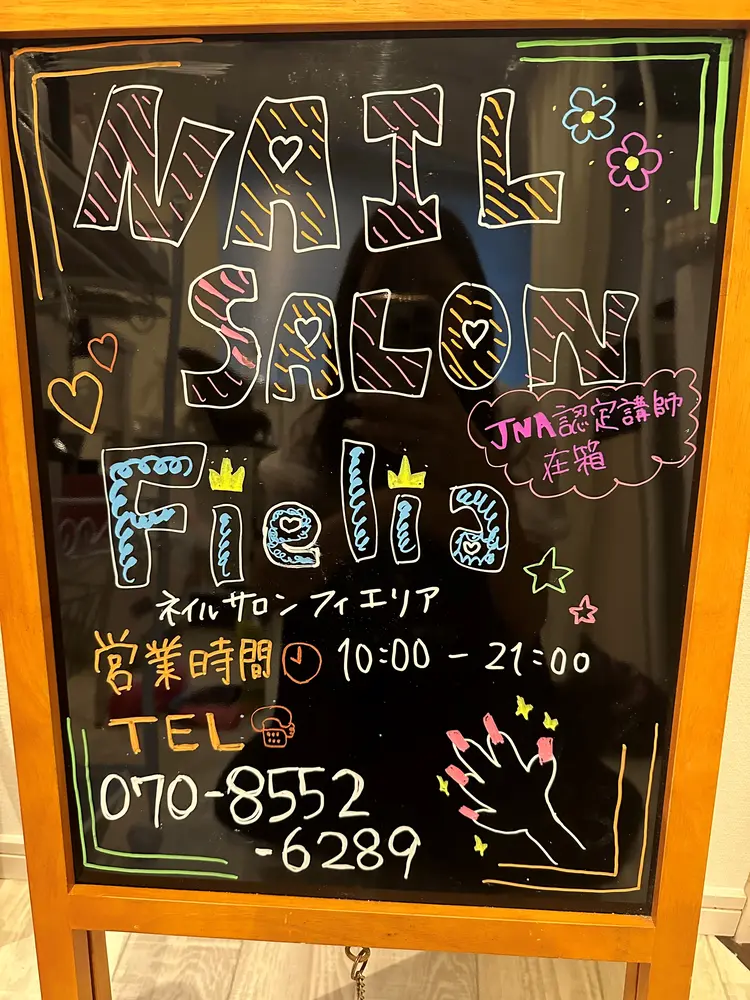 NAIL
SALON
JNA認定講師
在箱
Fielia
ネイルサロン フィエリア
営業時間 10:00 - 21:00
TEL
070-8552
-6289